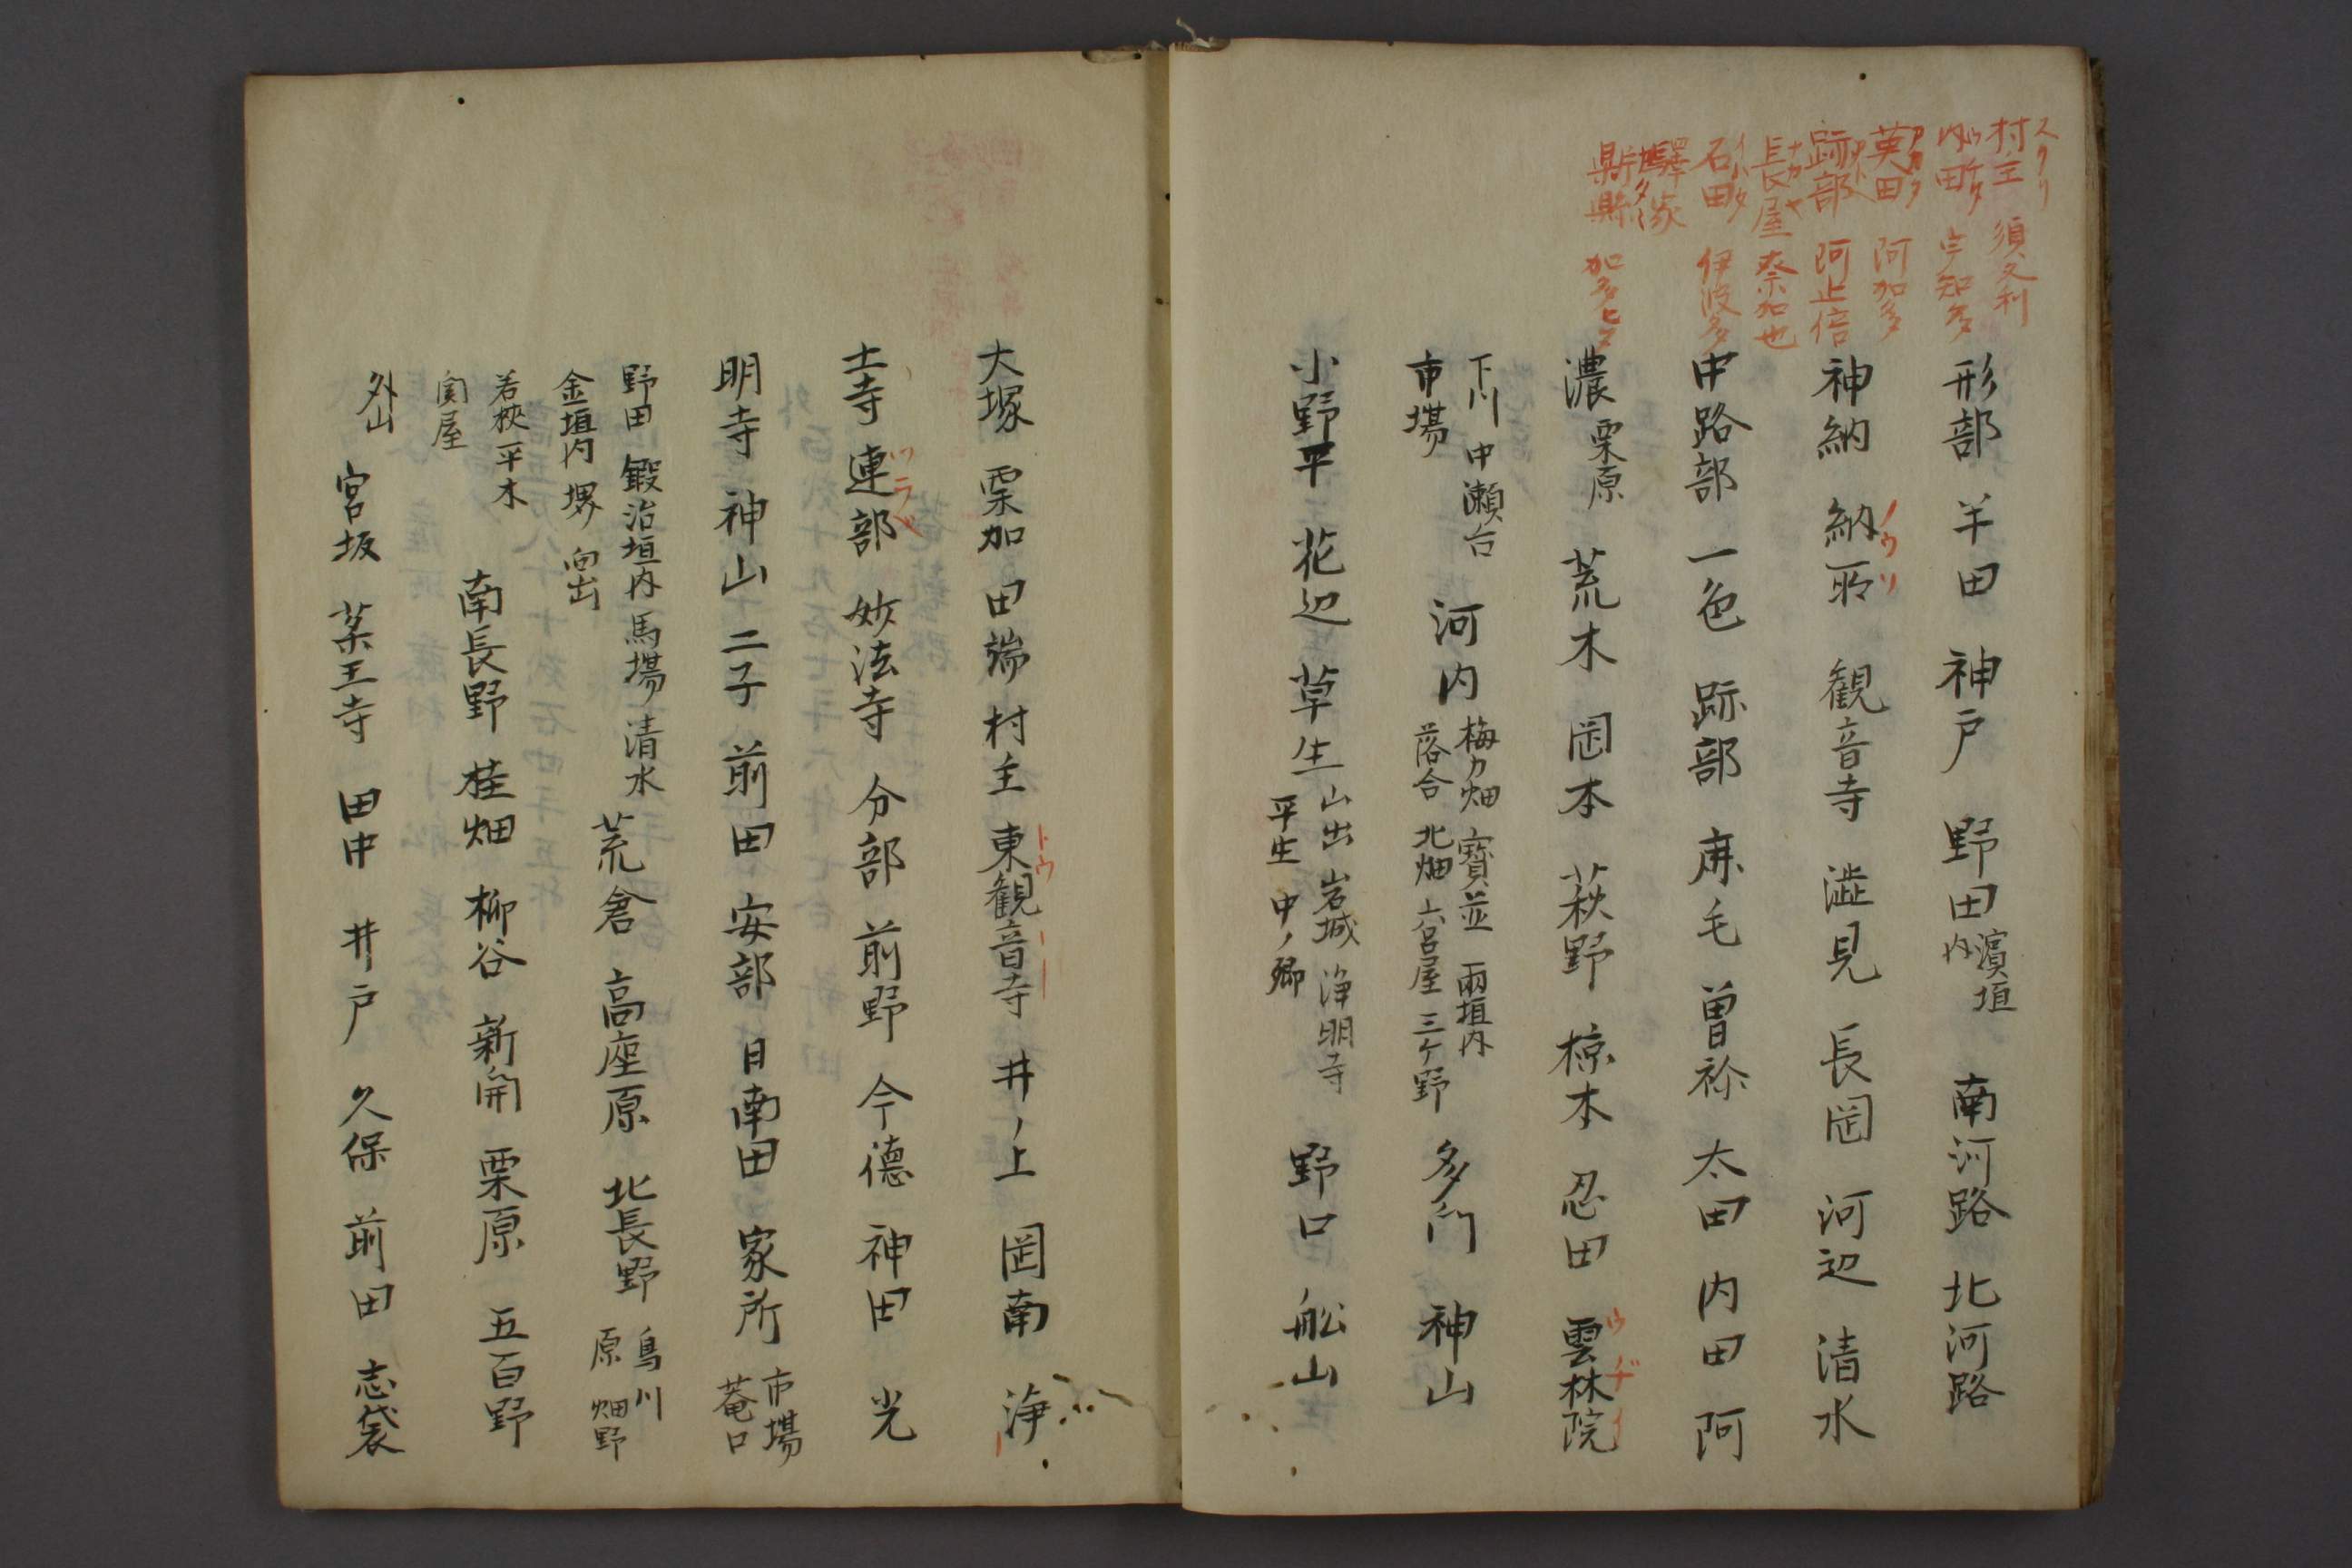 村主 スクリ 須久利
内田 ウチタ 宇知多
英田 アカタ 阿加多
跡部 アトヘ 阿止倍
長屋 ナカヤ 奈加也
石田 イハタ 伊波多
驛家
形部 羊田 神戸 野田 濱垣内 南河路 北河路
神納 納所 ノウソ 観音寺 澁見 長岡 河辺 清水
中路部 一色 跡部 麻毛 曽祢 太田 内田 阿
濃 栗原 荒木 岡本 萩野 椋本 忍田 雲林院 ウヂイ
下川 中瀬台 市場 河内 梅カ畑 寳並 兩垣内 落合 北畑 宮屋 三ケ野 多門 神山
小野平 花辺 草生 山出 岩城 浄明寺 平生 中ノ郷 野口 舩山
大塚 栗加 田端 村主 東観音寺 トウ 井ノ上 岡南 浄
土寺 連部 ツラヘ 妙法寺 分部 前野 今徳 神田 光
明寺 神山 二子 前田 安部 日南田 家所 市場 菴口
野田 鍛冶垣内 馬場 清水 金垣内 堺 向出 荒倉 高座原 北長野 鳥川 原 畑野
若狹 平木 関屋 南長野 桂畑 柳谷 新開 栗原 五百野
外山 宮坂 薬王寺 田中 井戸 久保 前田 志袋